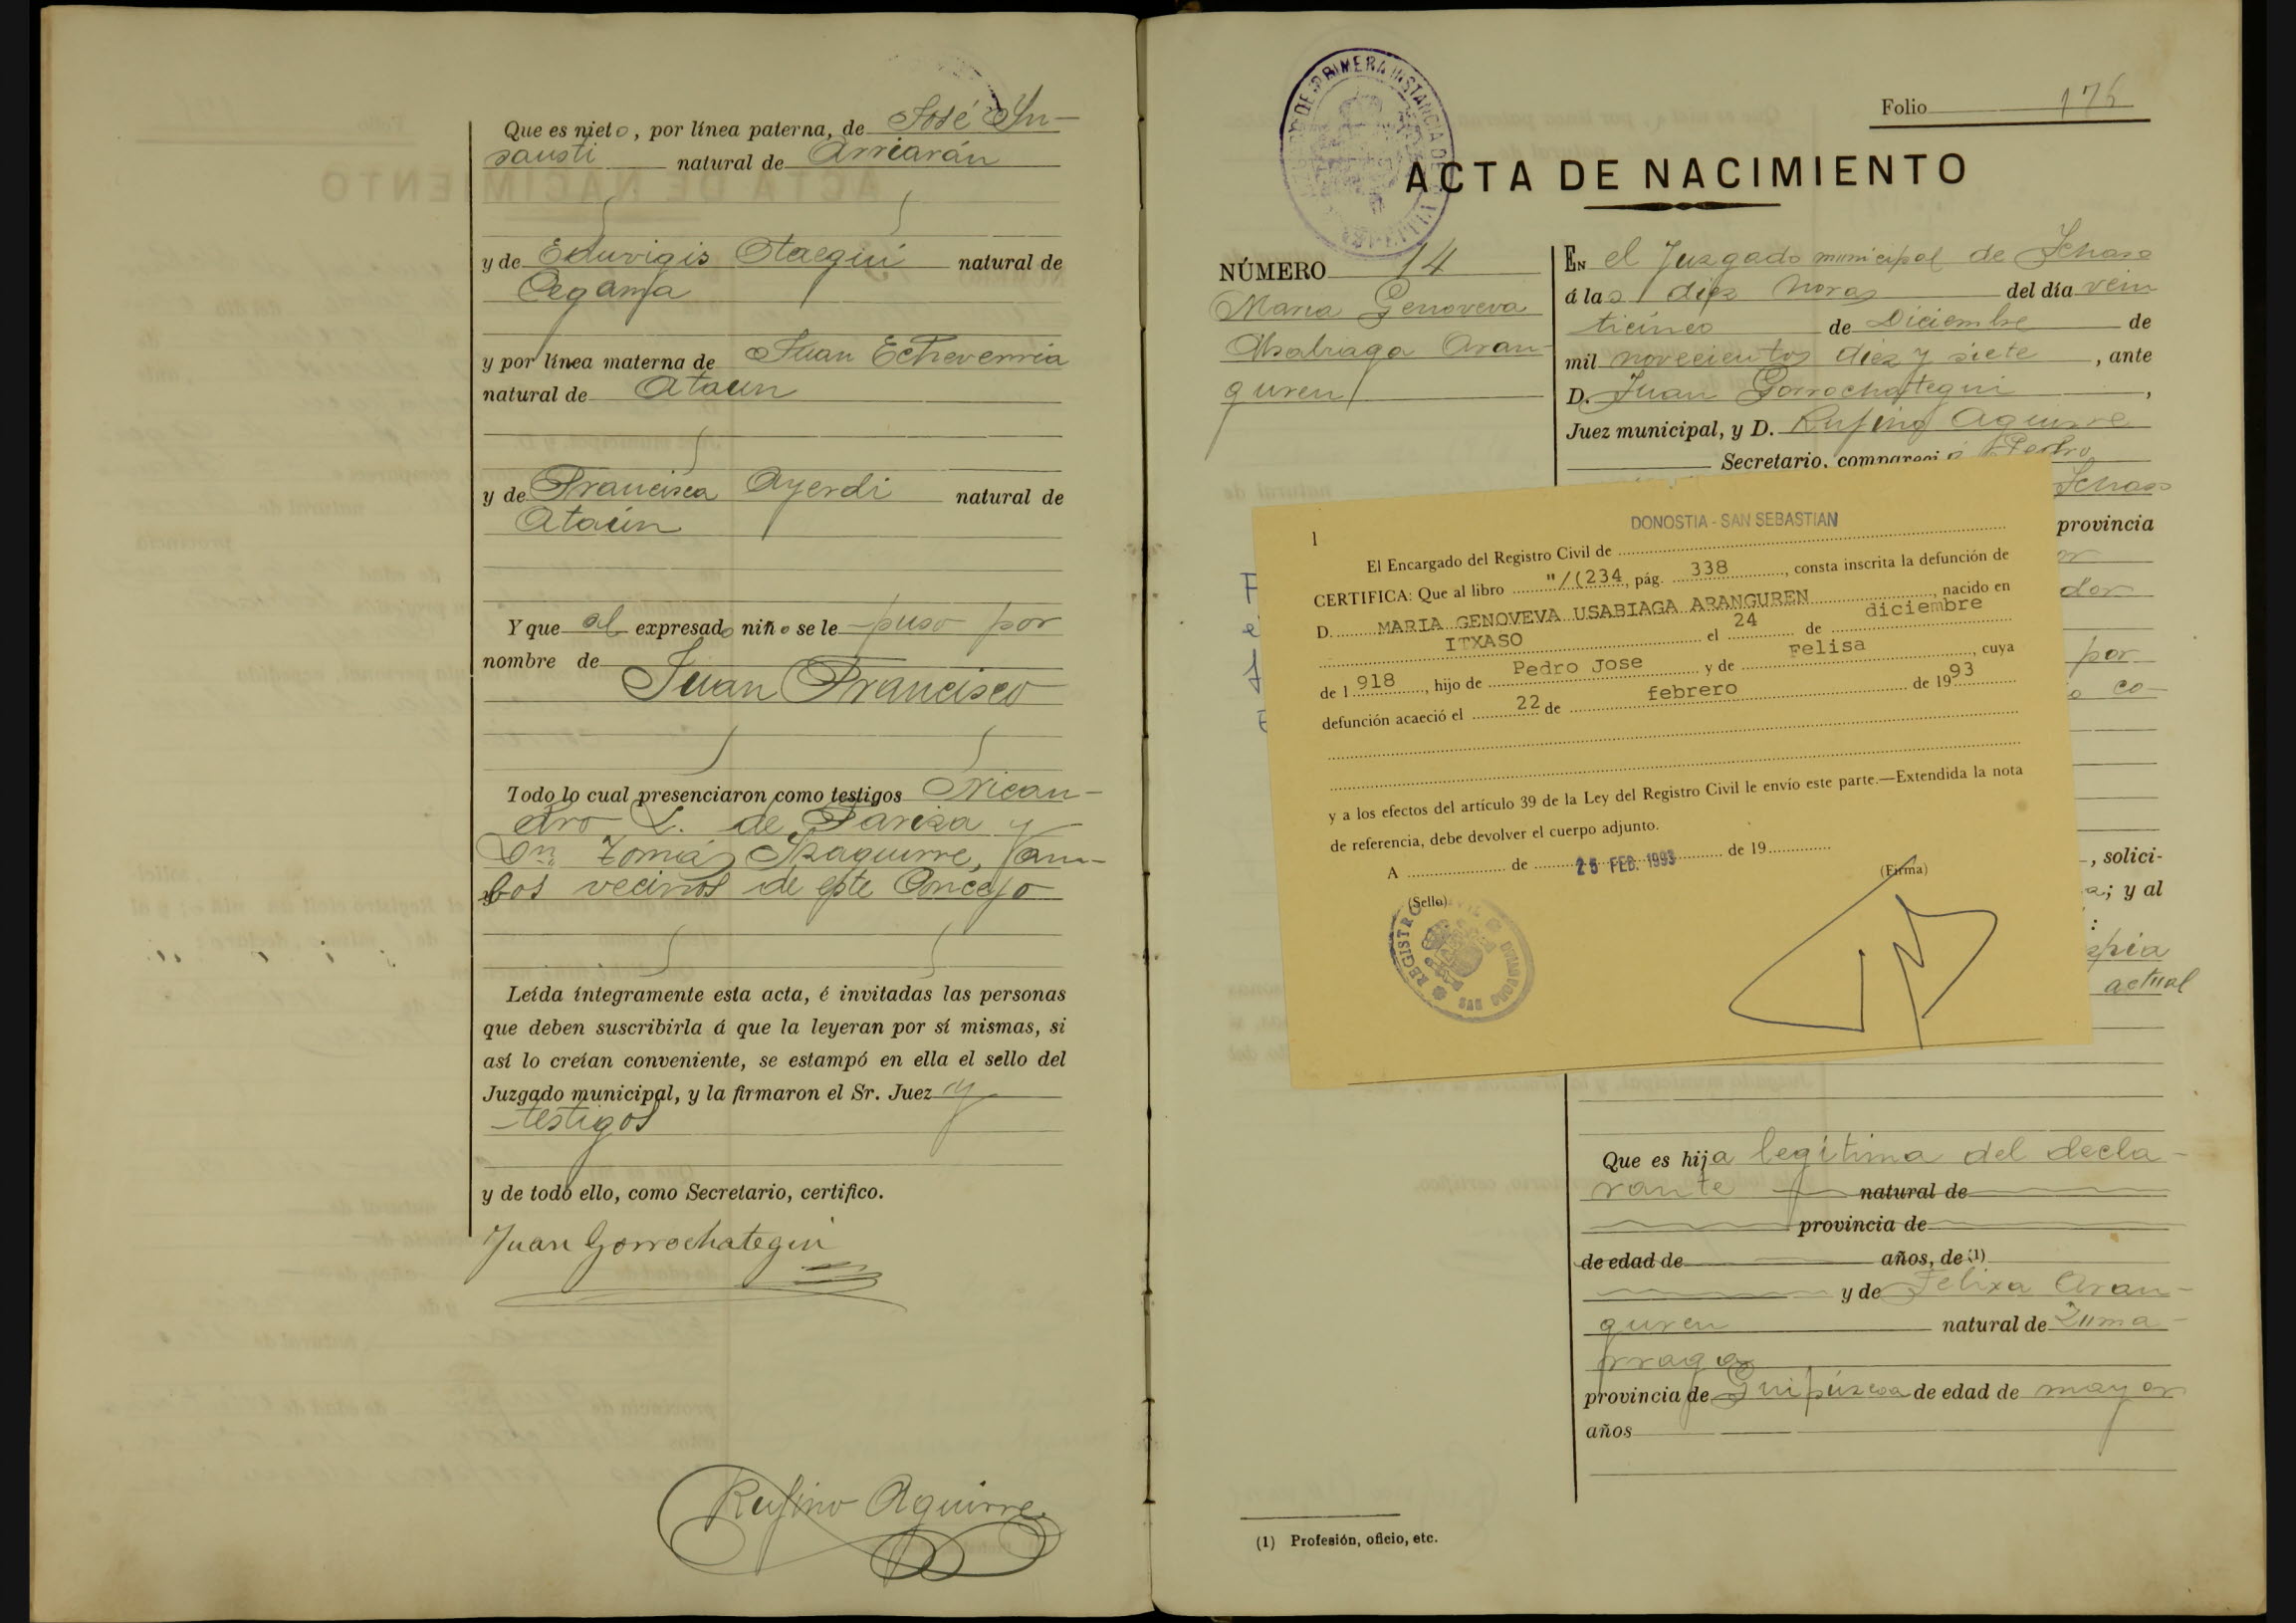 Que es nieto, por línea paterna, de José Yn-
sausti natural de Arriarán
y de Eduvigis Otaegui natural de
Cegama
y por línea materna de Juan Echeverria
natural de Ataun
y de Francisca Ayerdi natural de
Ataún
Y que al expresado niño se le puso por
nombre de
Juan Francisco
Todo lo cual presenciaron como testigos Nican-
dro L. de Pariza y
Dn. Tomás Yzaguirre, am-
bos vecinos de este Concejo
Leída íntegramente esta acta, é invitadas las personas
que deben suscribirla á que la leyeran por sí mismas, si
así lo creían conveniente, se estampó en ella el sello del
Juzgado municipal, y la firmaron el Sr. Juez y
testigos
y de todo ello, como Secretario, certifico.
Juan Gorrochategui
Rufino Aguirre
Folio 176
ACTA DE NACIMIENTO
NÚMERO 14
Maria Genoveva
Usabiaga Aran-
guren
En el Juzgado municipal de Ichaso
á las diez horas del día vein
ticinco de Diciembre de
mil novecientos diez y siete, ante
D. Juan Gorrochategui,
Juez municipal, y D. Rufino Aguirre
Secretario, compareció Pedro
Ichaso
provincia
dor
por
co-
, solici-
a; y al
actual
1
DONOSTIA - SAN SEBASTIAN
El Encargado del Registro Civil de
CERTIFICA: Que al libro "/(234, pág. 338, consta inscrita la defunción de
D. MARIA GENOVEVA USABIAGA ARANGUREN, nacido en
ITXASO el 24 de diciembre
de 1.918, hijo de Pedro Jose y de Felisa, cuya
defunción acaeció el 22 de febrero de 1993
y a los efectos del artículo 39 de la Ley del Registro Civil le envío este parte.—Extendida la nota
de referencia, debe devolver el cuerpo adjunto.
A de 25 FEB. 1993 de 19
(Firma)
(Sello)
REGISTRO
Que es hija legítima del decla-
rante natural de
provincia de
de edad de años, de (1)
y de Felixa Aran-
guren natural de Zuma-
rraga
provincia de Guipúzcoa de edad de mayor
años
(1) Profesión, oficio, etc.